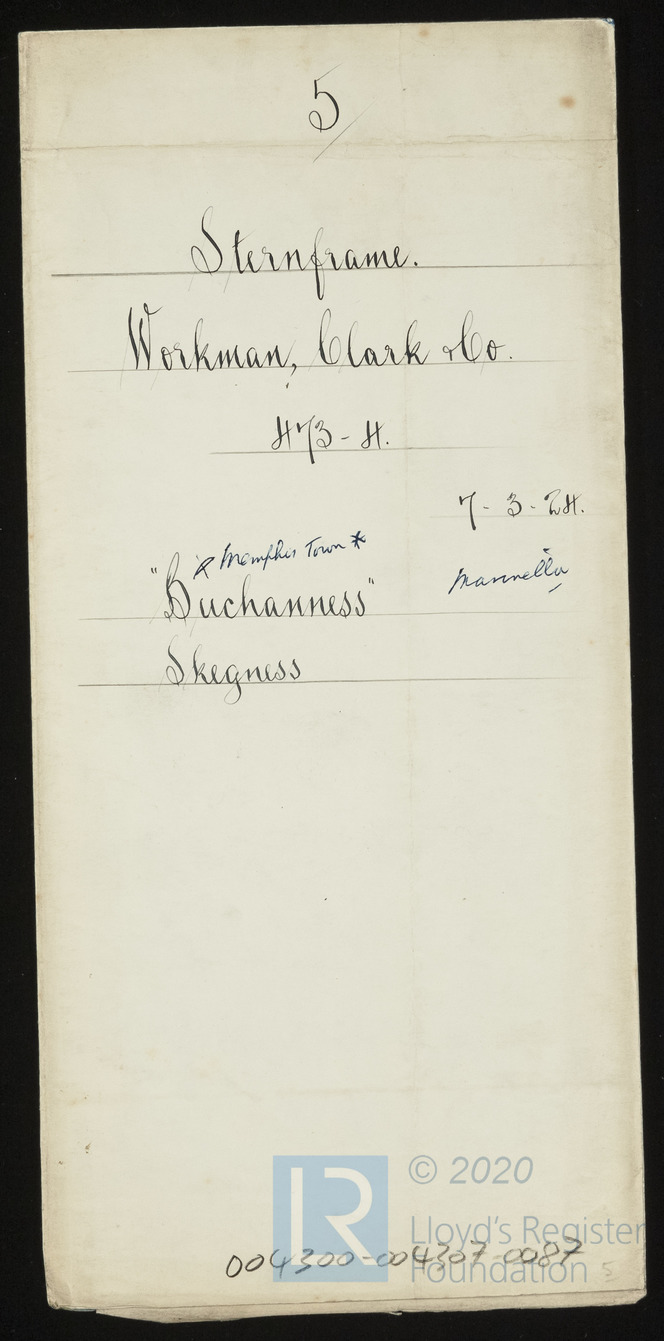 5
Sternframe.
Workman, Clark & Co.
473-4.
7-3-24.
Memphis Town *
"Buchanness"
Skegness
© 2020
Lloyd's Register
Foundation
004300-004307-0087
5